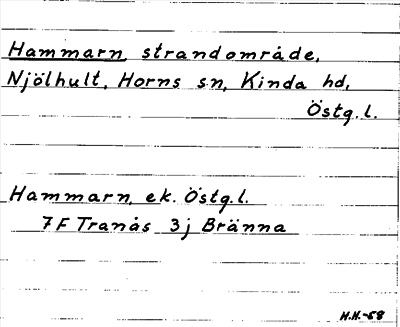 Hammarn, strandområde,
Njölhult, Horns sn, Kinda hd,
Östg.l.
Hammarn, ek. Östg.l.
7F Tranås 3j Bränna
H.H.-58